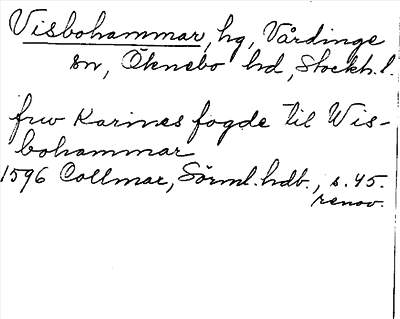 Visbohammar, hg, Vårdinge
sn, Öknebo hd, Stockh. l.
fru Karines fogde til Wis-
bohammar
1596 Collmar, Sörml. hdb., s. 45.
renov.